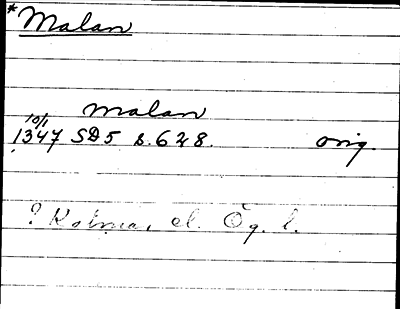 *Malan
Malan
10/1
1347 SD5 s. 628. orig.
? Kalmar, el. Ög. l.